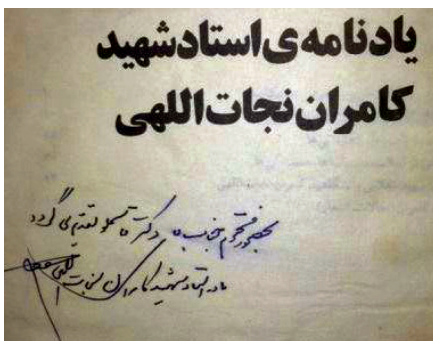 یادنامه‌ی استاد شهید
کامران نجات اللهی
بحضور محترم جناب دکتر قاسملو تقدیم می گردد
مادر استاد شهید کامران نجات اللهی